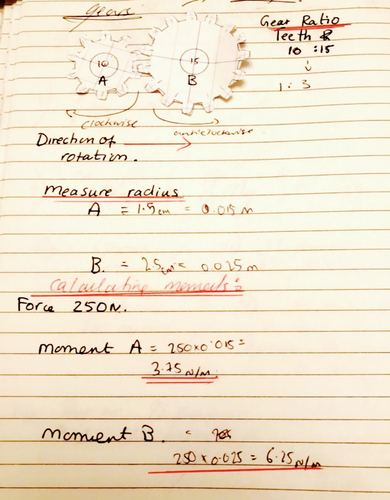 gears
Gear Ratio
Teeth
10 :15
↓
1 : 3
10
A
15
B
clockwise
anticlockwise
Direction of
rotation.
measure radius
A = 1.5cm = 0.015m
B. = 2.5cm = 0.025m
Calculating moments:
Force 250N.
moment A = 250×0.015=
3.75 N/m.
moment B. =
250 × 0.025 = 6.25 N/m